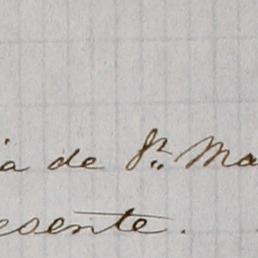 ia de Sn. Ma
esente.